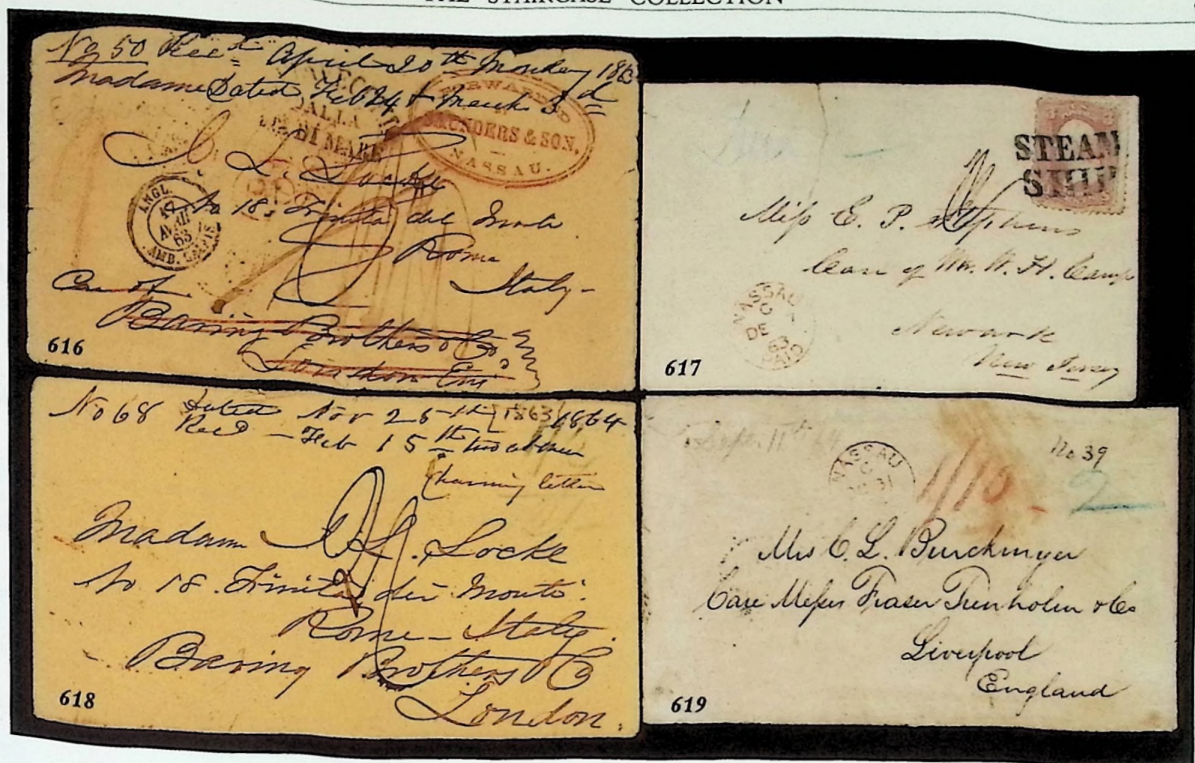 THE STAIRCASE COLLECTION
No 50 Rec^d April 20th Monday 1863
Madame Dated Feb 24 & March 3d
DALLA
VIA DI MARE
FORWARDED
SAUNDERS & SON.
NASSAU.
L. Locke
No 18. Trinita del Monte
Rome
Italy-
ANGL.
AVRIL
63
AMB. CALAIS
Care of
Baring Brothers & Co
London Eng
616
STEAM
SHIP
Miss E. P. Stephens
Care of Wm. H. Camp
Newark
New Jersey
NASSAU
C
DE
63
617
No 68 Dated Nov 25th 1863 1864
Rec^d - Feb 15th
Charming letter
Madam L. Locke
No 18. Trinita dei Monte.
Rome - Italy.
Baring Brothers & Co
London.
618
Sept. 11th 64
NASSAU
1/10
No 39
2
Mrs C. L. Burckmyer
Care Messrs Fraser Trenholm & Co
Liverpool
England
619